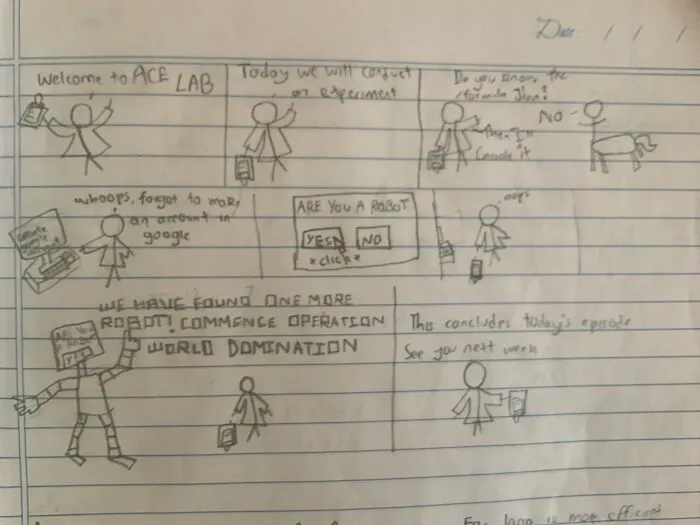 Date / / /
Welcome to ACE LAB
Today we will conduct
an experiment
Do you know the
formula Jien?
NO
Then I'll
Google it
whoops, forgot to make
an account in
google
ARE YOU A ROBOT
YES NO
*click*
oops
WE HAVE FOUND ONE MORE
ROBOT! COMMENCE OPERATION
WORLD DOMINATION
ARE YOU
A ROBOT
YES
This concludes today's episode
See you next week
is more efficient